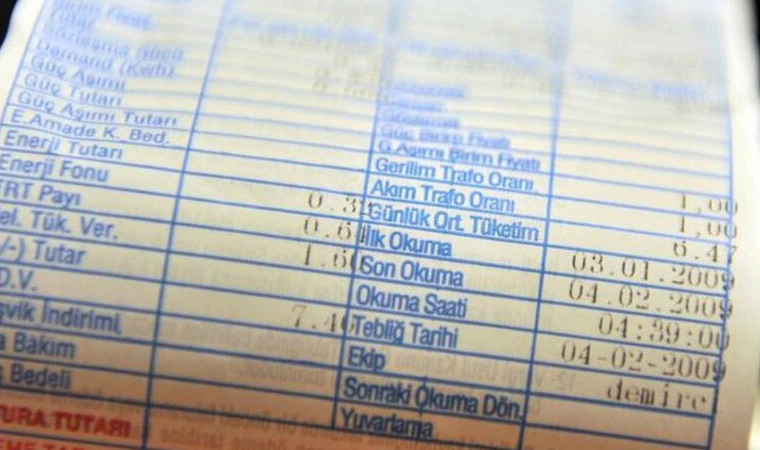 Birim Fiyat
Tutar
Sözleşme Gücü
Demand (Kwh)
Güç Aşımı
Güç Tutarı
Güç Aşımı Tutarı
E.Amade K. Bed.
Enerji Tutarı
Enerji Fonu
TRT Payı 0.3
el. Tük. Ver. 0.64
/-) Tutar 1.60
D.V.
şvik İndirimi 7.40
a Bakım
Bedeli
TURA TUTARI
Güç Birim Fiyatı
G.Aşımı Birim Fiyatı
Gerilim Trafo Oranı 1,00
Akım Trafo Oranı 1,00
Günlük Ort. Tüketim 6.47
İlk Okuma 03.01.2009
Son Okuma 04.02.2009
Okuma Saati 04:39:00
Tebliğ Tarihi 04-02-2009
Ekip demirel
Sonraki Okuma Dön.
Yuvarlama